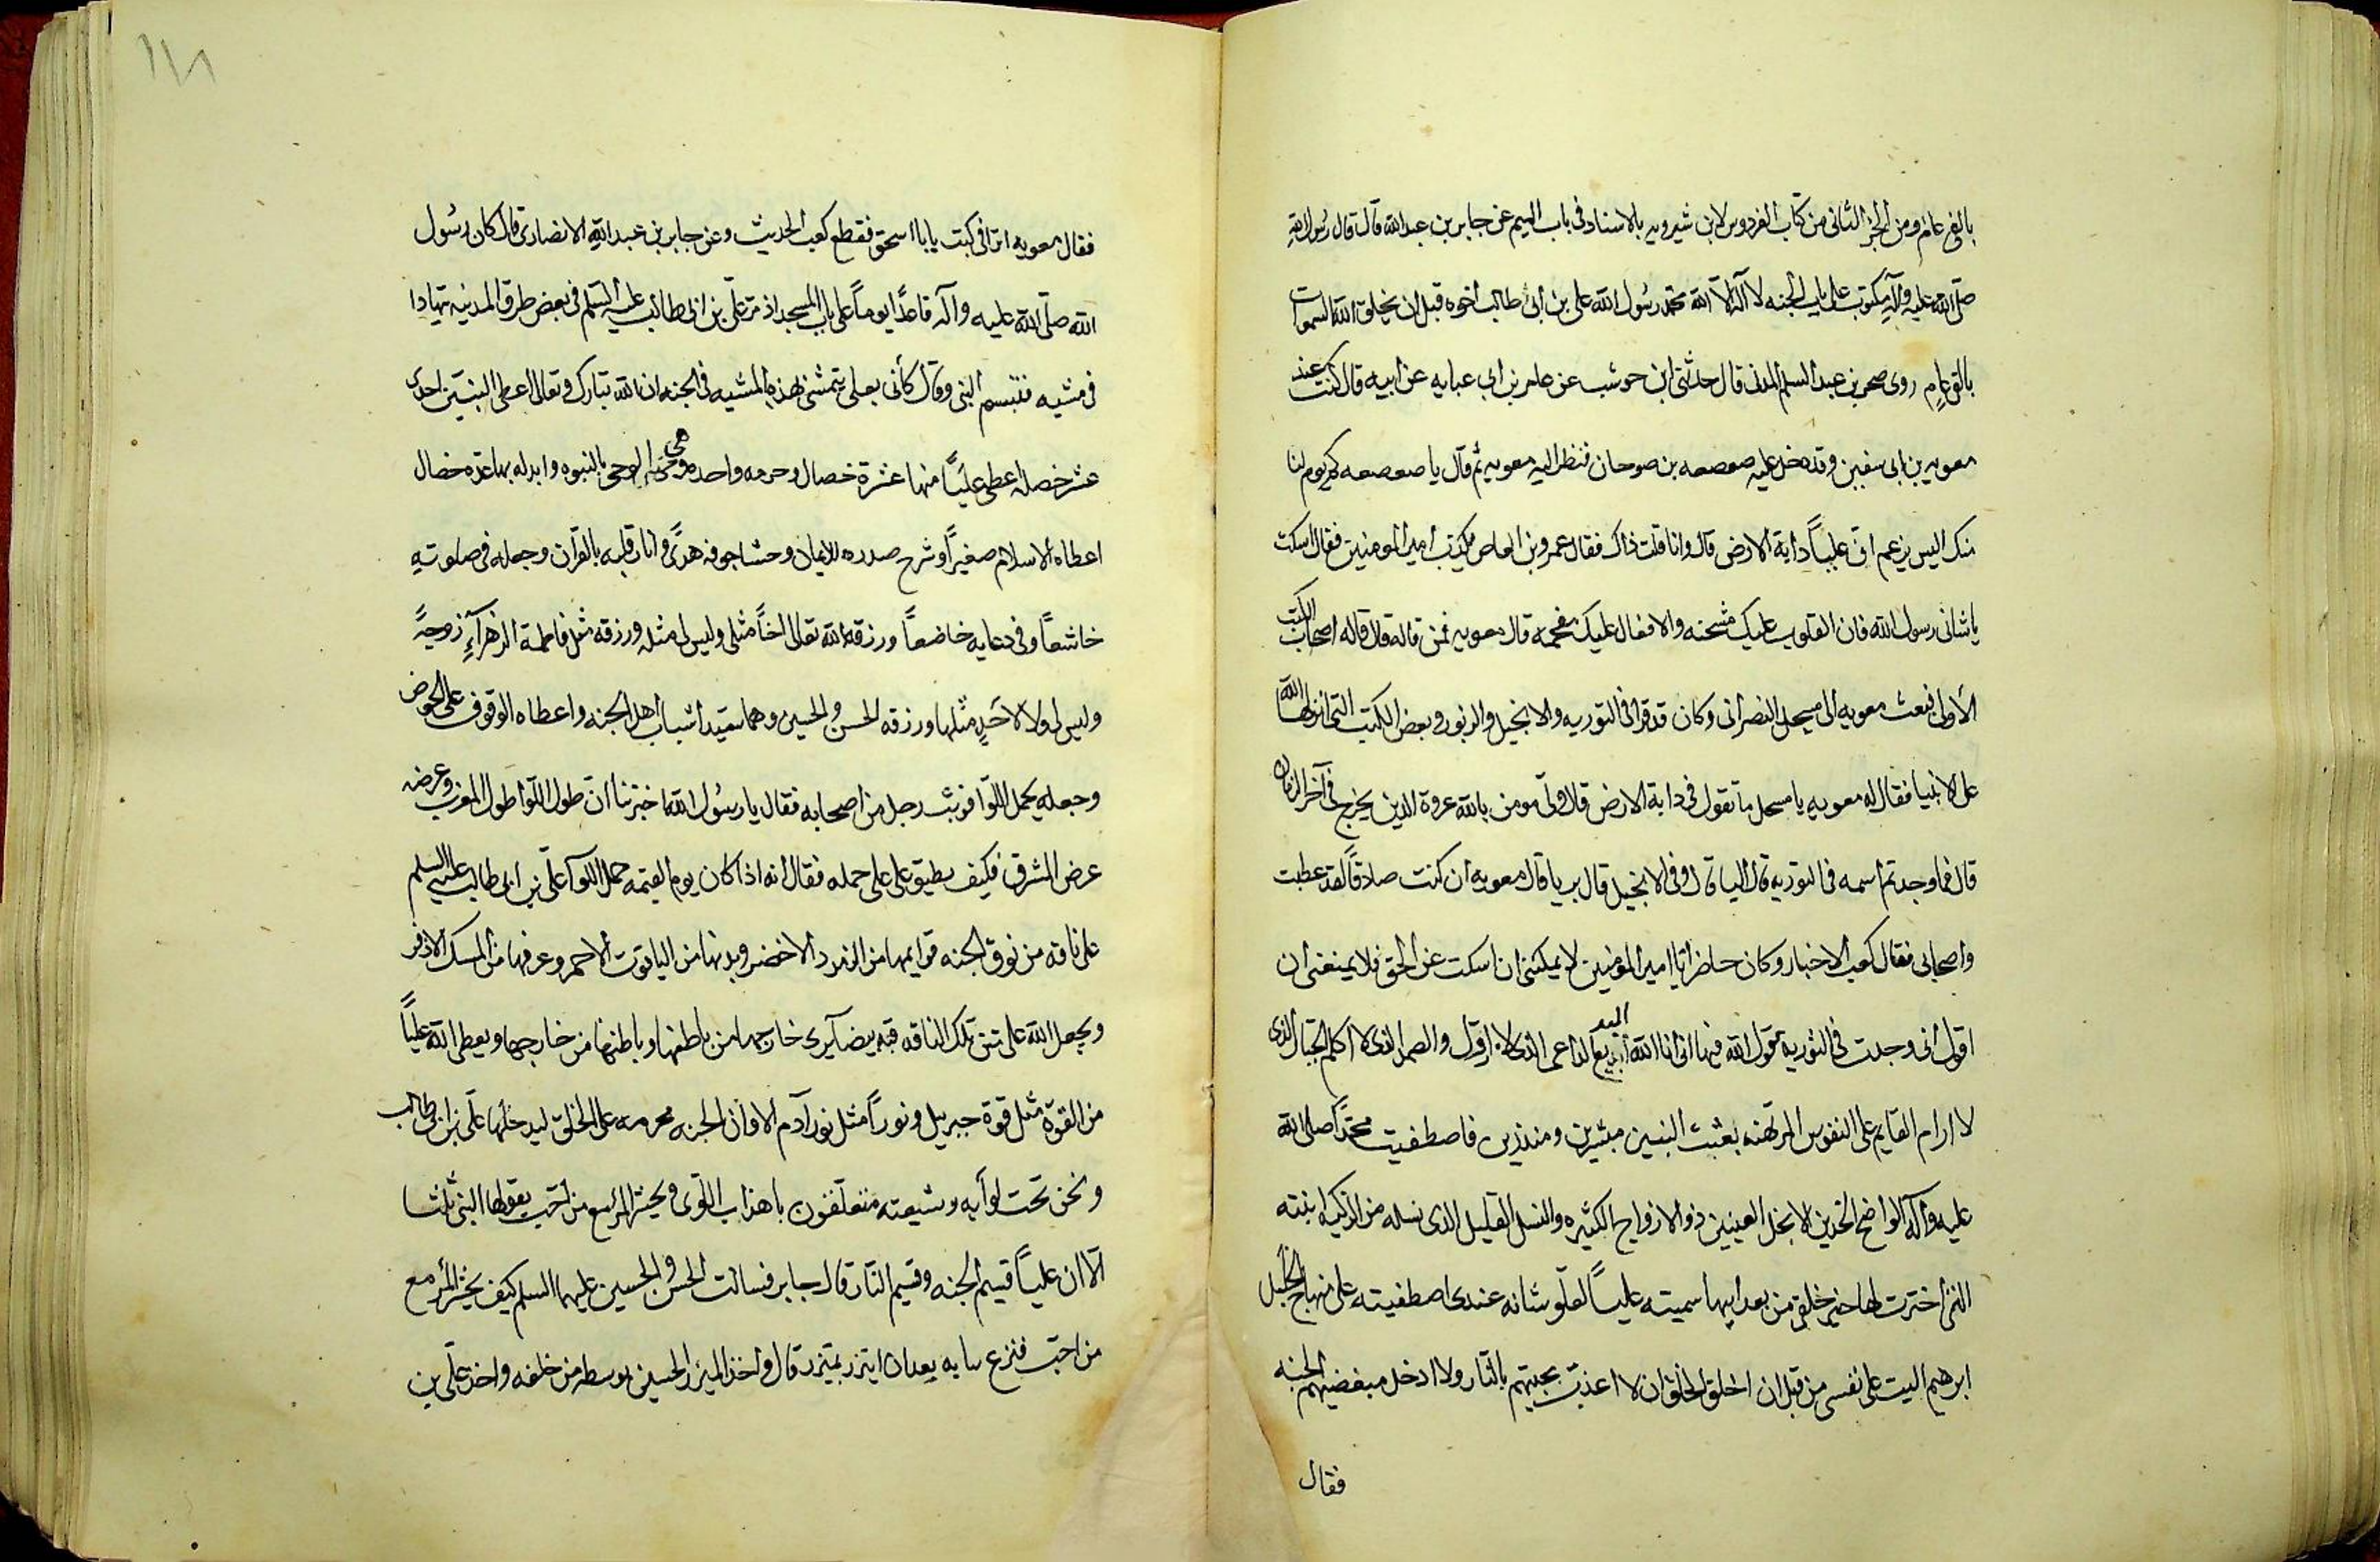 بالفى عام ومن الجزء الثانى من كتاب الفردوس لابن شيرويه بالاسناد فى باب الميم عن جابر بن عبدالله قال قال رسول الله
صلى الله عليه وآله مكتوب على باب الجنه لا اله الا الله محمد رسول الله على بن ابى طالب اخوه قبل ان يخلق الله السموات
بالفى عام روى صحر بن عبدالسلم المدنى قال حدثنى ابن حوشب عن عامر بن ابى عبايه عن ابيه قال كنت عند
معويه بن ابى سفين وقد دخل عليه صعصعه بن صوحان فنظر اليه معويه ثم قال يا صعصعه كم يوم لنا
منك اليس يزعم ان علياً دابة الارض قال وانا قلت ذاك فقال عمرو بن العاص يكذب امير المومنين فقال اسكت
يا شانى رسول الله فان القلوب عليك مشحنه والافعال عليك مفحمه قال معويه فمن قاله قال قاله اصحاب الكتب
الاولى فبعث معويه الى مسحل النصرانى وكان قد قرا فى التوريه والانجيل والزبور وبعض الكتب التى انزلها الله
على الانبيا فقال له معويه يا مسحل ما تقول فى دابة الارض قال ولى مومن بالله عروة الدين يخرج فى آخر الزمان
قال فما وجدتم اسمه فى التوريه قال اليا قال وفى الانجيل قال بريا قال معويه ان كنت صادقاً لقد عطبت
واصحابى فقال كعب الاخبار وكان حاضراً يا امير المومنين لا يمكننى ان اسكت عن الحق فلا يمنعنى ان
اقول انى وجدت فى التوريه يقول الله فيها انى انا الله البديع الداعى الذى لا ازول والصمد الذى لا اكلم الجبال الذى
لا ارام القايم على النفوس المرتهنه بعثت النبيين مبشرين ومنذرين فاصطفيت محمداً صلى الله
عليه وآله الواضح الخدين الانجل العينين ذو الازواج الكثيره والنسل القليل الذى نسله من الزكيه ابنته
التى اخترت لها خير خلقى من بعد ابيها سميته علياً لعلو شانه عندى اصطفيته على منهاج الخليل
ابرهيم اليت على نفسى من قبل ان اخلق الخلق ان لا اعذب محبيهم بالنار ولا ادخل مبغضيهم الجنه
فقال
فقال معويه اترا فى كتبت يا با اسحق فقطع كعب الحديث وعن جابر بن عبدالله الانصارى قال كان رسول
الله صلى الله عليه وآله قاعداً يوماً على باب المسجد اذ مر على بن ابى طالب عليه السلم فى بعض طرق المدينه يتهادا
فى مشيه فتبسم النبى وقال كأنى بعلى يتمشى بهذه المشيه فى الجنه ان الله تبارك وتعالى اعطى النبيين احدى
عشر خصله اعطى علياً منها عشرة خصال وحرمه واحده وهى محنه الوحى بالنبوه وابدله بها عدة خصال
اعطاه الاسلام صغيراً وشرح صدره للايمان وحشا جوفه هدىً وانار قلبه بالقرآن وجعله فى صلوته
خاشعاً وفى دعايه خاضعاً ورزقه الله تعالى اخاً مثلى وليس لى مثله ورزقه مثل فاطمة الزهرآء زوجةً
وليس لى ولا لاحد مثلها ورزقه الحسن والحسين وهما سيدا شباب اهل الجنه واعطاه الوقوف على الحوض
وجعله يحمل اللوا فوثب رجل من اصحابه فقال يا رسول الله اخبرتنا ان طول اللوا طول المغرب وعرضه
عرض المشرق فكيف يطيق على على حمله فقال انه اذا كان يوم القيمه حمل اللوآ على بن ابى طالب عليه السلم
على ناقه من نوق الجنه قوايمها من الزمرد الاخضر وبدنها من الياقوت الاحمر وعرفها من المسك الاذفر
ويجعل الله على متن تلك الناقه قبه بيضآ يرى خارجها من باطنها وباطنها من خارجها ويعطى الله علياً
من القوة مثل قوة جبريل ونوراً مثل نور آدم الا وان الجنه محرمه على الخلق ليدخلها على بن ابى طالب
ونحن تحت لوآيه وشيعته متعلقون باهداب اللوى ويحشر المرء مع من احب يقولها النبى ثلثا
الا ان علياً قسيم الجنه وقسيم النار قال جابر فسالت الحسن والحسين عليهما السلم كيف يحشر المرء مع
من احب فنزع سايه بعدان ايتزر بميزر قال واخذ الميزر الحسين بوسطه من خلفه واخذ على بن